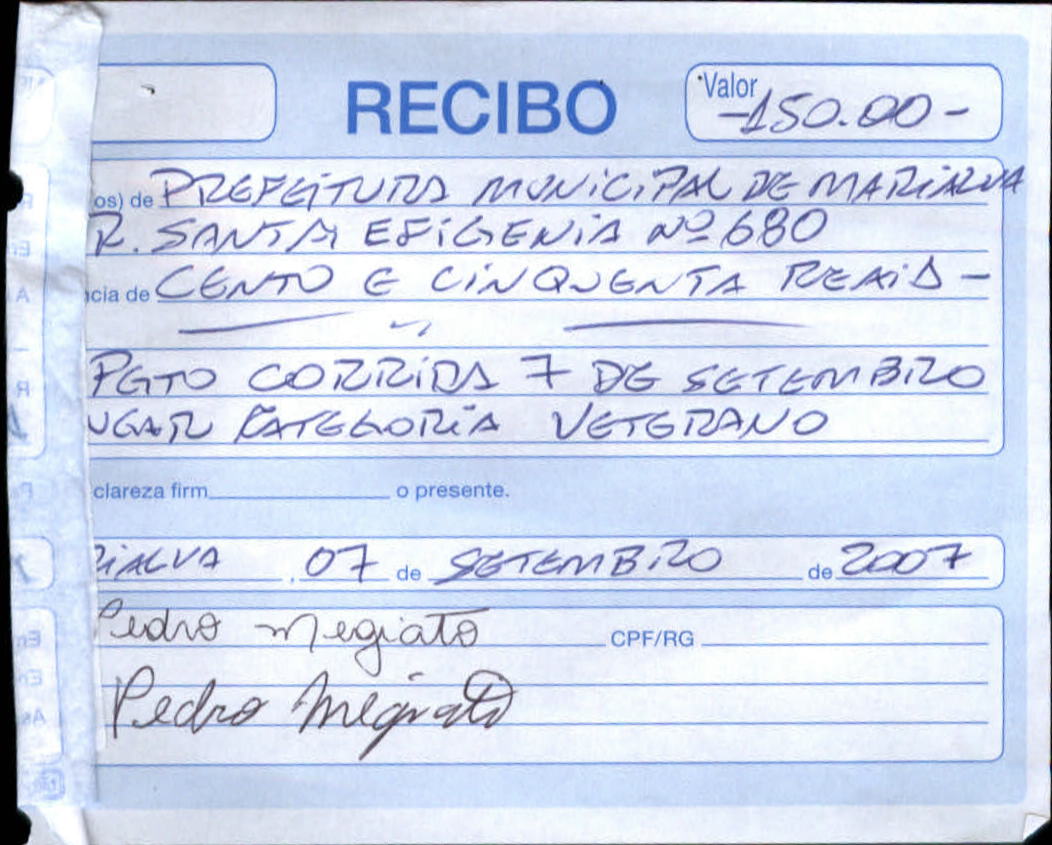 RECIBO
Valor
-150.00-
os) de PREFEITURA MUNICIPAL DE MARIALVA
R. SANTA EFIGENIA Nº 680
cia de CENTO E CINQUENTA REAIS -
PGTO CORRIDA 7 DE SETEMBRO
UGAR CATEGORIA VETERANO
clareza firm o presente.
RIALVA, 07 de SETEMBRO de 2007
Pedro Megiato CPF/RG
Pedro Megiato